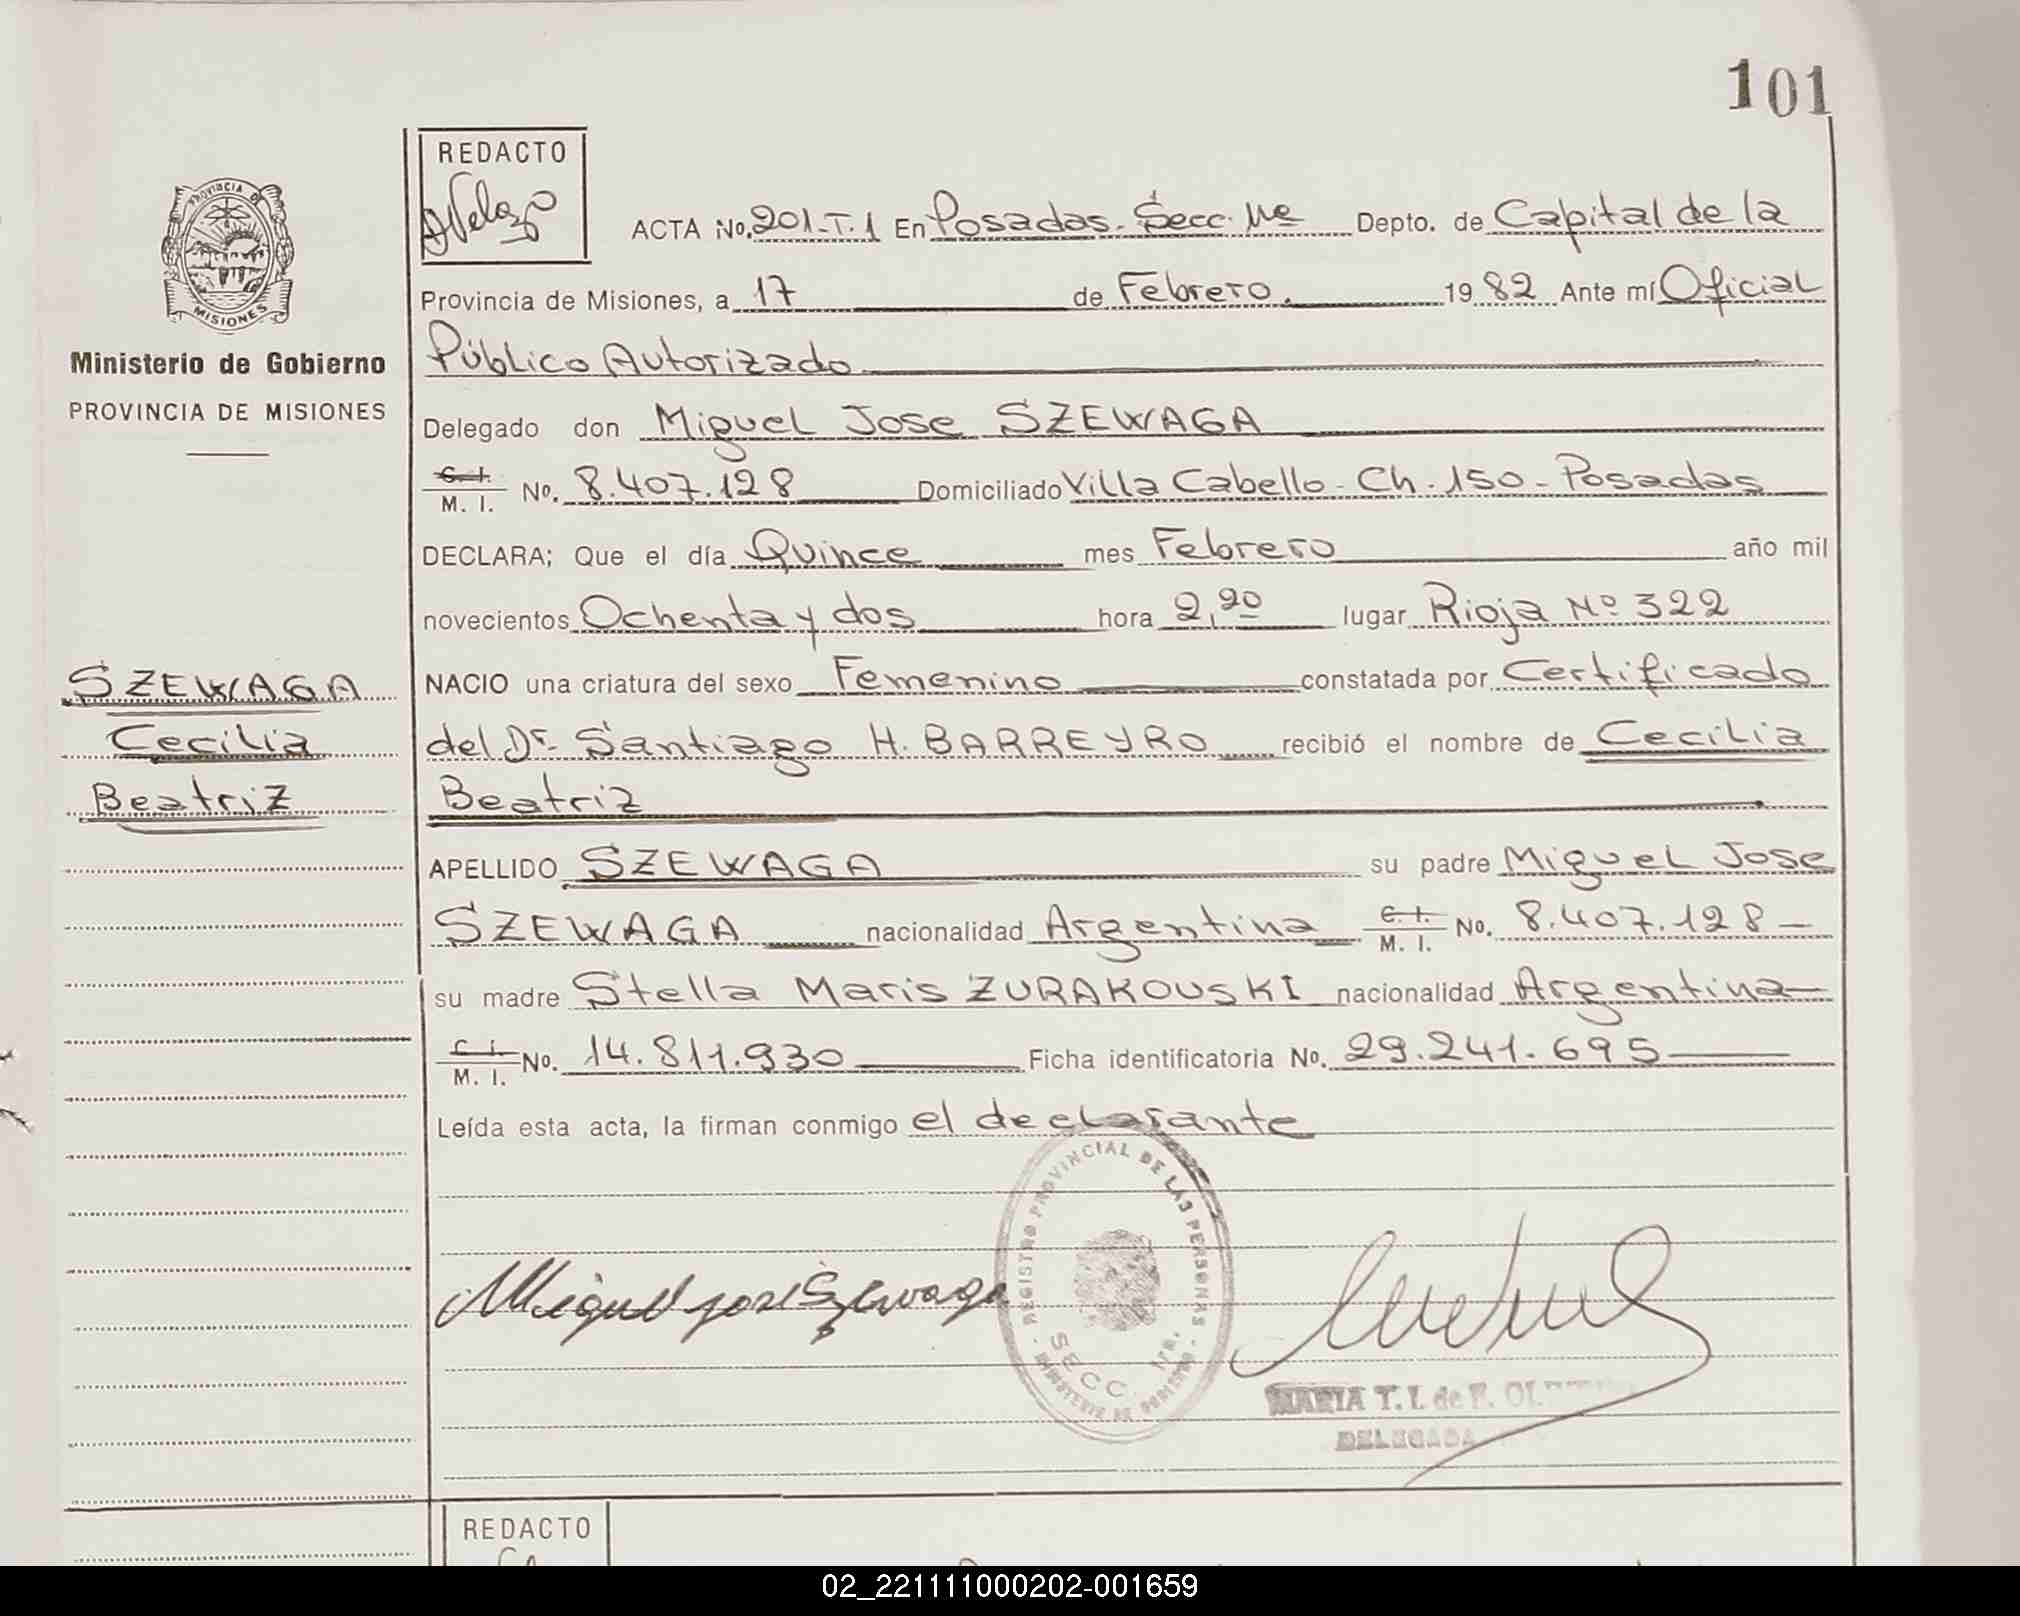 101
REDACTO
PROVINCIA DE
MISIONES
ACTA No. 201-T.1 En Posadas. Secc. 1ra Depto. de Capital de la
Provincia de Misiones, a 17 de Febrero. 1982 Ante mí Oficial
Público Autorizado
Ministerio de Gobierno
PROVINCIA DE MISIONES
Delegado don Miguel Jose SZEWAGA
C. I. M. I. No. 8.407.128 Domiciliado Villa Cabello - Ch. 150 - Posadas
DECLARA; Que el día Quince mes Febrero año mil
novecientos Ochenta y dos hora 2,20 lugar Rioja Nº 322
SZEWAGA
Cecilia
Beatriz
NACIO una criatura del sexo Femenino constatada por Certificado
del Dr. Santiago H. BARREYRO recibió el nombre de Cecilia
Beatriz
APELLIDO SZEWAGA su padre Miguel Jose
SZEWAGA nacionalidad Argentina C. I. M. I. No. 8.407.128
su madre Stella Maris ZURAKOUSKI nacionalidad Argentina
C. I. M. I. No. 14.811.930 Ficha identificatoria No. 29.241.695
Leída esta acta, la firman conmigo el declarante
REGISTRO PROVINCIAL DE LAS PERSONAS
SECC. 1ra.
MINISTERIO DE GOBIERNO
Miguel José Szewaga
MARIA T. I. de F.
DELEGADA
REDACTO
02_221111000202-001659